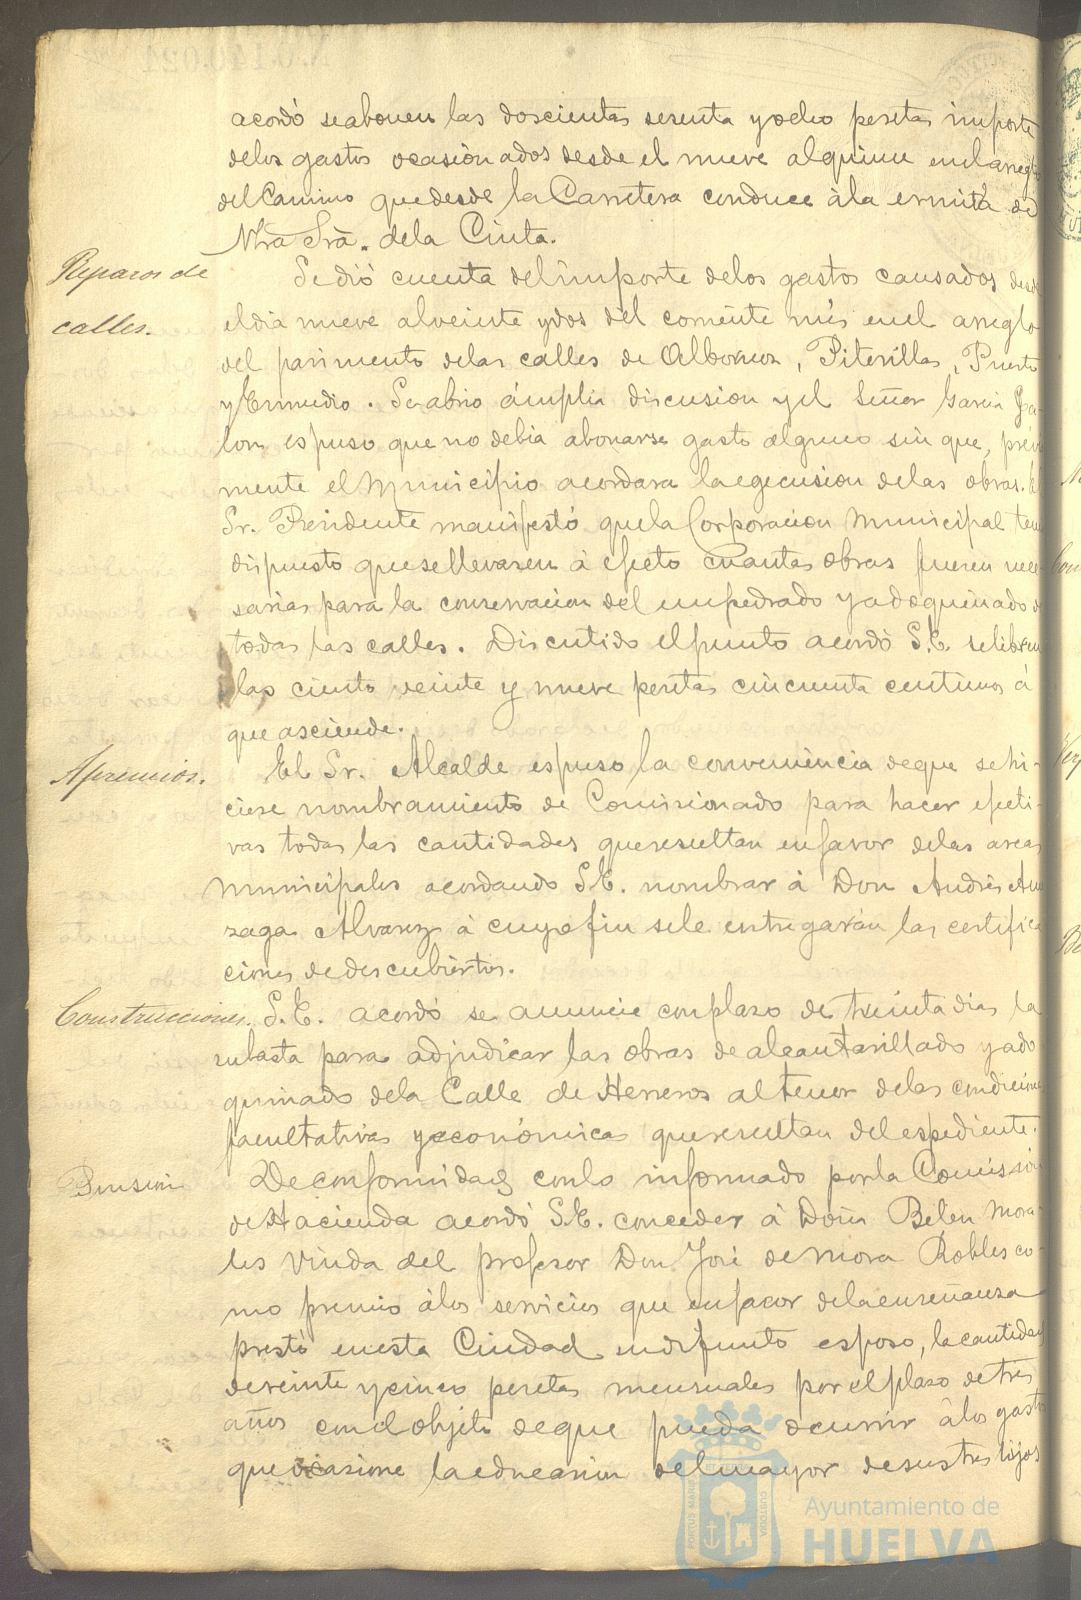 acordó se abonen las doscientas sesenta y ocho pesetas importe
de los gastos ocasionados desde el nueve al quince en el arreglo
del Camino que desde la Carretera conduce à la ermita de
Ntra Sra. de la Cinta.
Reparos de
calles.
Se dió cuenta del importe de los gastos causados desde
el dia nueve al veinte y dos del corriente mes en el arreglo
del pavimento de las calles de Albornoz, Piterillas, Puerto
y Enmedio. Se abrio ámplia discusion y el Señor Garcia
espuso que no debia abonarse gasto alguno sin que, prévia
mente el Municipio acordara la egecusion de las obras. El
Sr. Presidente manifestó que la Corporacion Municipal tenia
dispuesto que se llevasen à efecto cuantas obras fueren nece
sarias para la conservacion del empedrado y adoquinado de
todas las calles. Discutido el punto acordó S.E. se libren
las ciento veinte y nueve pesetas cincuenta centimos á
que asciende.
Apremios.
El Sr. Alcalde espuso la conveniencia de que se hi-
ciese nombramiento de Comisionado para hacer efecti-
vas todas las cantidades que resultan en favor de las arcas
Municipales acordando S.E. nombrar à Don Andrés
zaga Alvarez à cuyo fin se le entregarán las certifica
ciones de descubiertos.
Construcciones.
S.E. acordó se anuncie con plazo de treinta dias la
subasta para adjudicar las obras de alcantarillado y ado
quinado de la Calle de Herreros al tenor de las condiciones
facultativas y económicas que resultan del espediente.
Pension
De conformidad con lo informado por la Comision
de Hacienda acordó S.E. conceder à Doña Belen Mora-
les viuda del profesor Don José de Mora Robles co-
mo premio à los servicios que en favor de la enseñanza
prestó en esta Ciudad su difunto esposo, la cantidad
de veinte y cinco pesetas mensuales por el plazo de tres
años con el objeto de que pueda ocurrir à los gastos
que ocasione la educasion del mayor de sus tres hijos
Ayuntamiento de
HUELVA